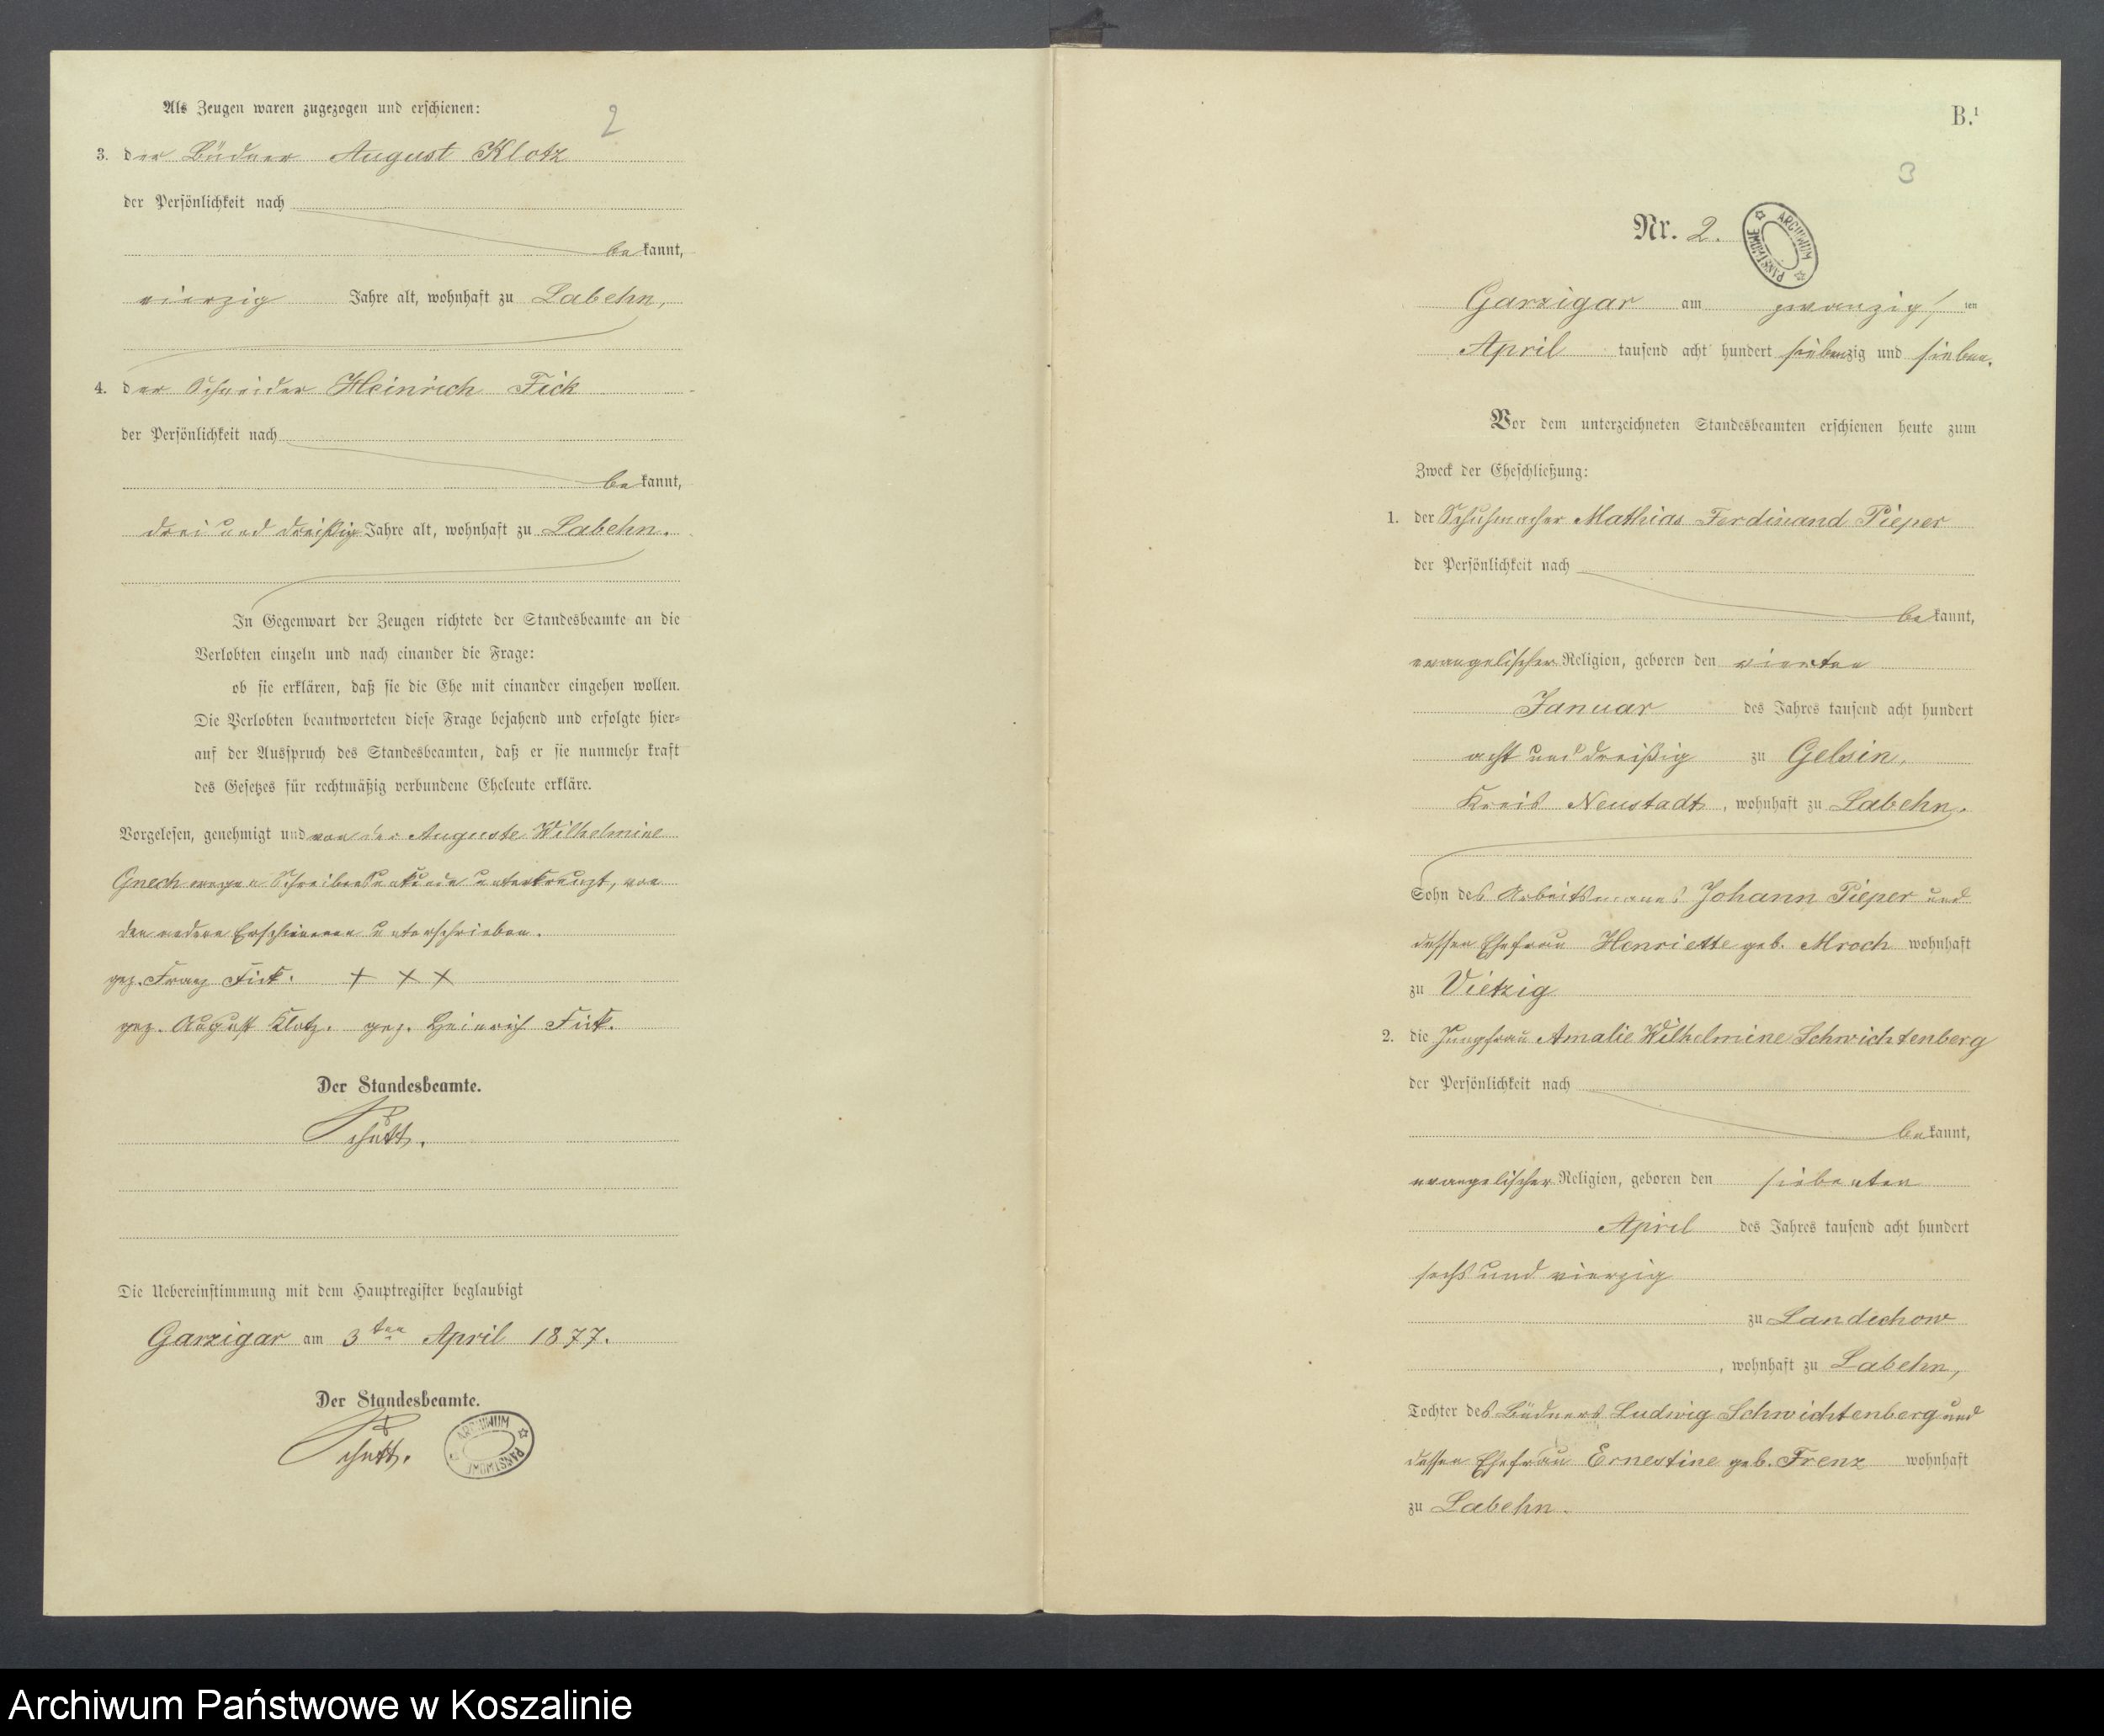 Als Zeugen waren zugezogen und erschienen:
2
3. der Büdner August Klotz
der Persönlichkeit nach
bekannt,
vierzig Jahre alt, wohnhaft zu Labehn,
4. der Schneider Heinrich Fick
der Persönlichkeit nach
bekannt,
drei und dreißig Jahre alt, wohnhaft zu Labehn.
In Gegenwart der Zeugen richtete der Standesbeamte an die
Verlobten einzeln und nach einander die Frage:
ob sie erklären, daß sie die Ehe mit einander eingehen wollen.
Die Verlobten beantworteten diese Frage bejahend und erfolgte hier-
auf der Ausspruch des Standesbeamten, daß er sie nunmehr kraft
des Gesetzes für rechtmäßig verbundene Eheleute erkläre.
Vorgelesen, genehmigt und von der Auguste Wilhelmine
Gnech wegen Schreibensunkunde unterkreuzt, von
den andern Erschienenen unterschrieben.
gez. Franz Fick. + + +
gez. August Klotz. gez. Heinrich Fick.
Der Standesbeamte.
Schütt.
Die Uebereinstimmung mit dem Hauptregister beglaubigt
Garzigar am 3ten April 1877.
Der Standesbeamte.
Schütt.
ARCHIWUM PAŃSTWOWE
B.¹
3
Nr. 2.
ARCHIWUM PAŃSTWOWE
Garzigar am zwanzigsten
April tausend acht hundert siebenzig und sieben.
Vor dem unterzeichneten Standesbeamten erschienen heute zum
Zweck der Eheschließung:
1. der Schuhmacher Mathias Ferdinand Pieper
der Persönlichkeit nach
bekannt,
evangelischer Religion, geboren den vierten
Januar des Jahres tausend acht hundert
acht und dreißig zu Gelsin,
Kreis Neustadt, wohnhaft zu Labehn.
Sohn des Arbeitsmanns Johann Pieper und
dessen Ehefrau Henriette geb. Mroch wohnhaft
zu Vietzig
2. die Jungfrau Amalie Wilhelmine Schwichtenberg
der Persönlichkeit nach
bekannt,
evangelischer Religion, geboren den siebenten
April des Jahres tausend acht hundert
sechs und vierzig
zu Landechow
, wohnhaft zu Labehn,
Tochter des Büdners Ludwig Schwichtenberg und
dessen Ehefrau Ernestine geb. Frenz wohnhaft
zu Labehn.
Archiwum Państwowe w Koszalinie